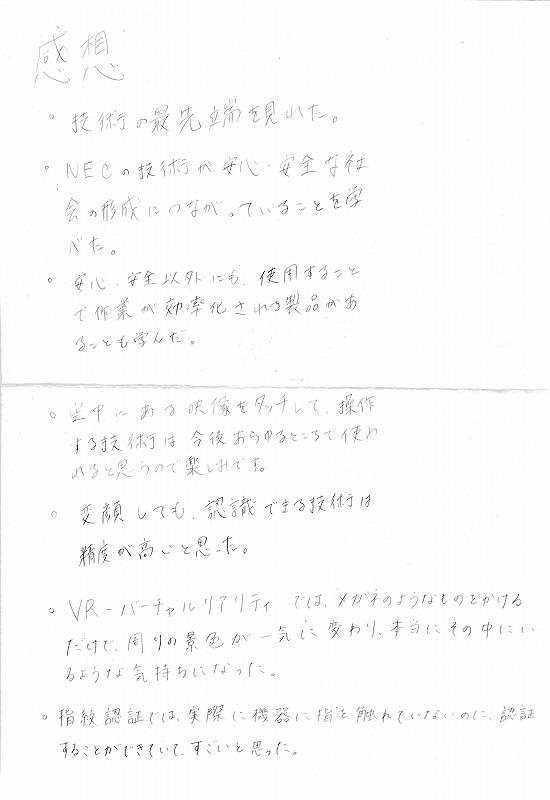 感想
○ 技術の最先端を見れた。
○ NECの技術が安心・安全な社
会の形成につながっていることを学
べた。
○ 安心・安全以外にも、使用すること
で作業が効率化される製品があ
ることも学んだ。
○ 空中にある映像をタッチして、操作
する技術は今後あらゆるところで使わ
れると思うので楽しみです。
○ 変顔しても、認識できる技術は
精度が高いと思った。
○ VR-バーチャルリアリティ では、メガネのようなものをかける
だけで、周りの景色が一気に変わり、本当にその中にい
るような気持ちになった。
○ 指紋認証では、実際に機器に指を触れていないのに、認証
することができていて、すごいと思った。